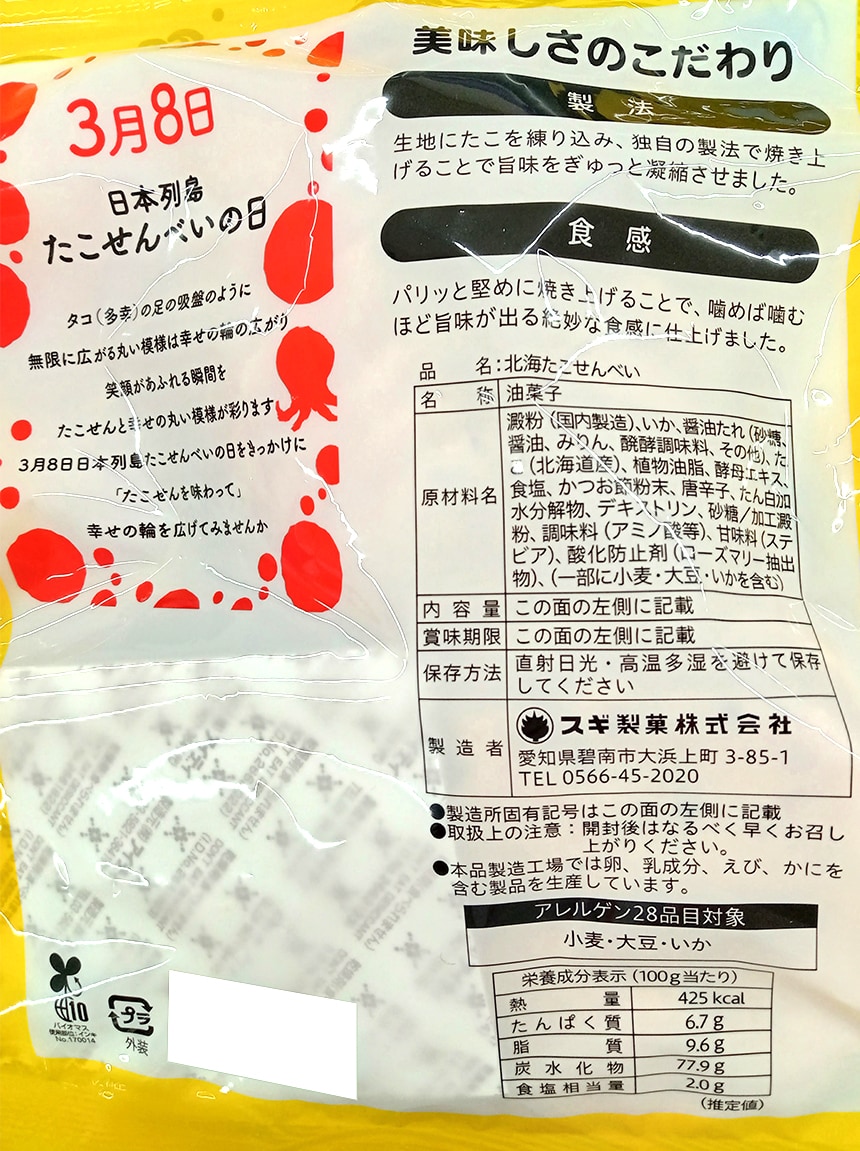 3月8日
日本列島
たこせんべいの日
タコ(多幸)の足の吸盤のように
無限に広がる丸い模様は幸せの輪の広がり
笑顔があふれる瞬間を
たこせんと幸せの丸い模様が彩ります
3月8日日本列島たこせんべいの日をきっかけに
「たこせんを味わって」
幸せの輪を広げてみませんか
美味しさのこだわり
製法
生地にたこを練り込み、独自の製法で焼き上
げることで旨味をぎゅっと凝縮させました。
食感
パリッと堅めに焼き上げることで、噛めば噛む
ほど旨味が出る絶妙な食感に仕上げました。
品名:北海たこせんべい
名称 油菓子
原材料名
澱粉(国内製造)、いか、醤油たれ(砂糖、
醤油、みりん、醗酵調味料、その他)、た
こ(北海道産)、植物油脂、酵母エキス、
食塩、かつお節粉末、唐辛子、たん白加
水分解物、デキストリン、砂糖/加工澱
粉、調味料(アミノ酸等)、甘味料(ステ
ビア)、酸化防止剤(ローズマリー抽出
物)、(一部に小麦・大豆・いかを含む)
内容量 この面の左側に記載
賞味期限 この面の左側に記載
保存方法 直射日光・高温多湿を避けて保存
してください
製造者 スギ製菓株式会社
愛知県碧南市大浜上町 3-85-1
TEL 0566-45-2020
●製造所固有記号はこの面の左側に記載
●取扱上の注意:開封後はなるべく早くお召し
上がりください。
●本品製造工場では卵、乳成分、えび、かにを
含む製品を生産しています。
アレルゲン28品目対象
小麦・大豆・いか
栄養成分表示(100g当たり)
熱量 425 kcal
たんぱく質 6.7 g
脂質 9.6 g
炭水化物 77.9 g
食塩相当量 2.0 g
(推定値)
バイオマス
使用部位:インキ
No.170014
プラ
外装